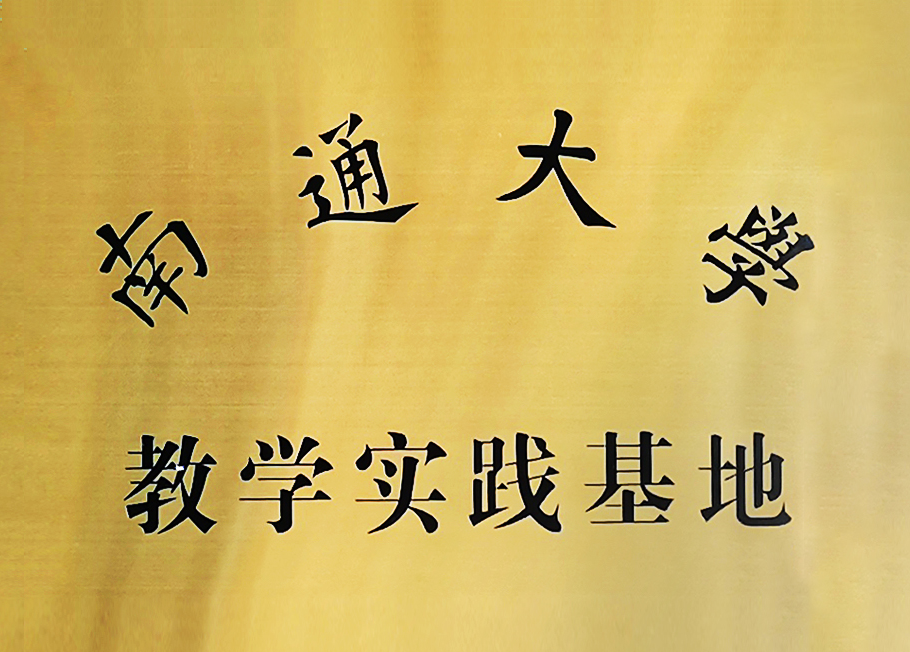 南通大學
教学实践基地